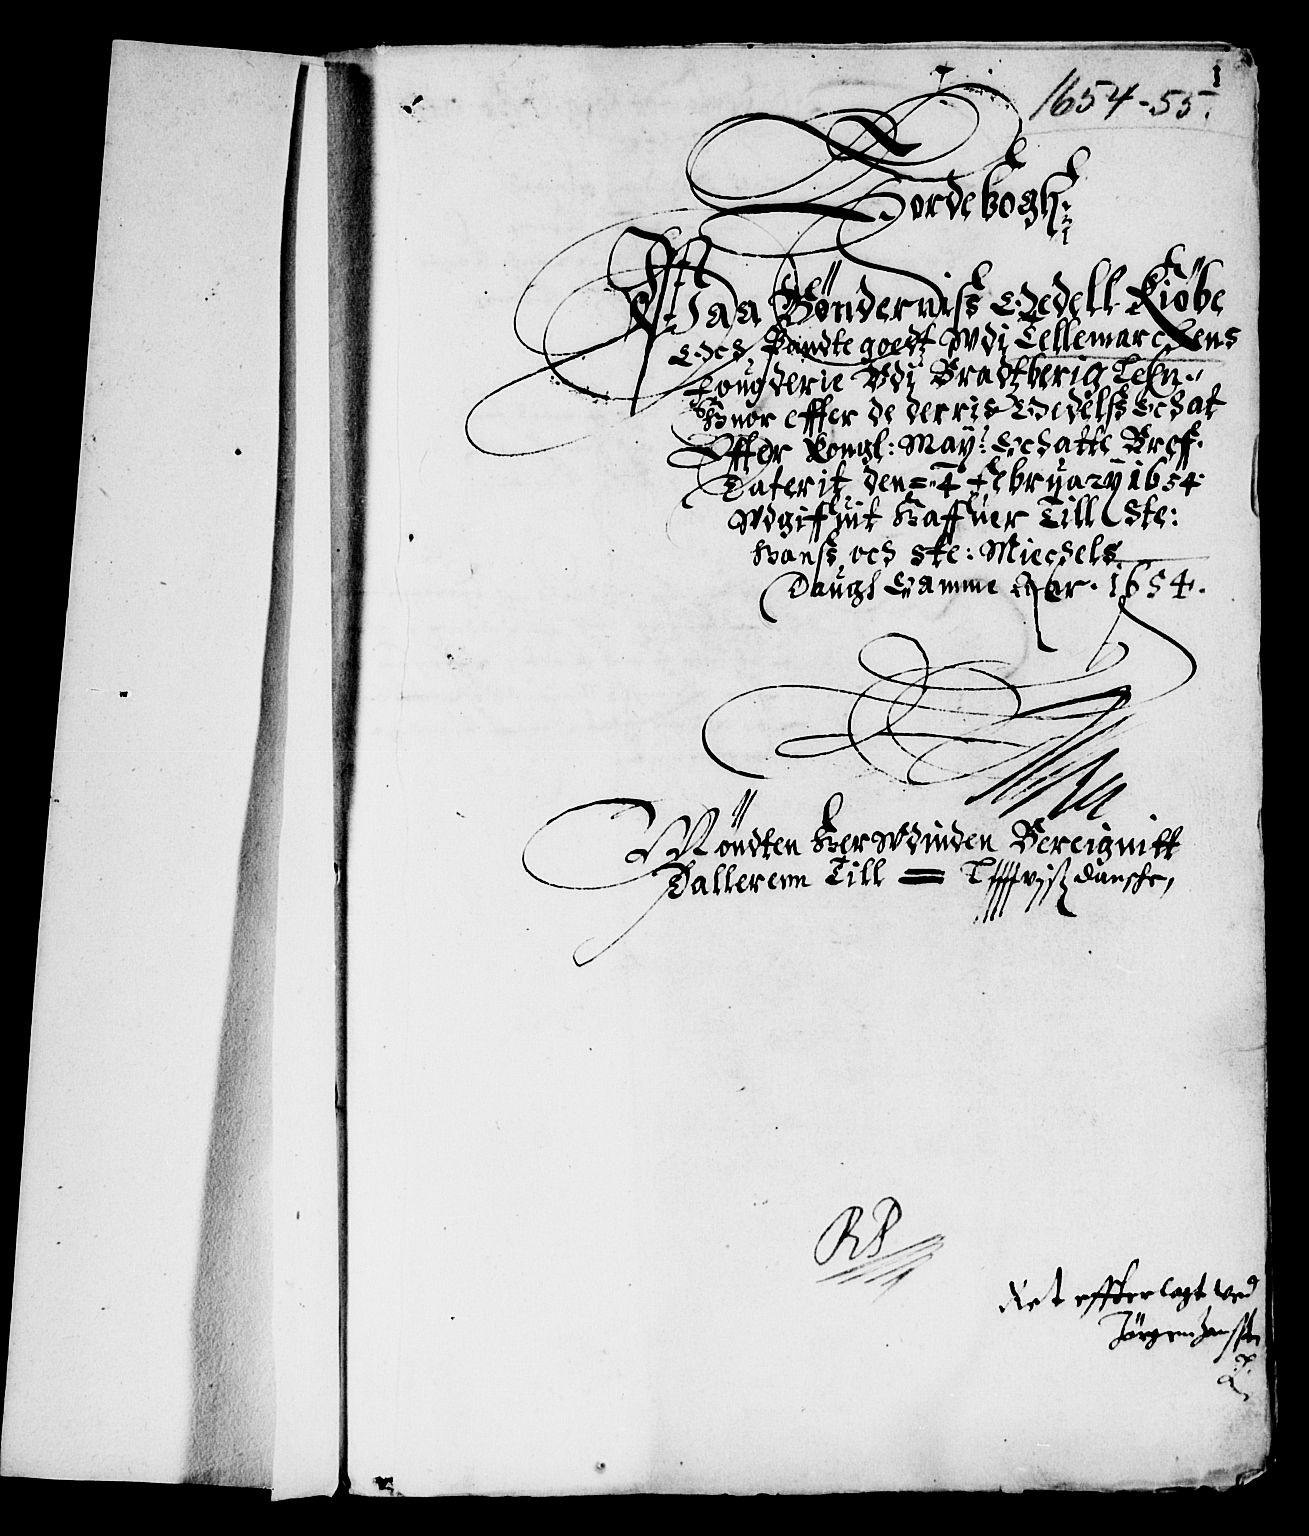 1
1654-55.
Jordebogh
Paa Bønderniss Odell Kiøbe
Och Pandte goedz Wdj Tellemarckens
fougderie Vdj Bradtberig Lehn
huor effter de derris Odelss schat
Effter Kongl: May: schatte Bref
Daterit den 4 februarÿ 1654
Wdgiffuit haffuer Till Ste:
hanss och Ste: Michels
Daugh Samme Aar. 1654.
Möndten her Wdinden Bereignitt
Dallerenn Till = danske,
RP
Ret effter lagt ved
Jörgen Janssen